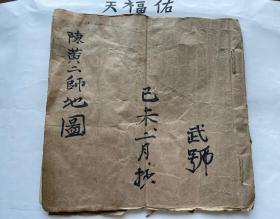 天福佑
陳黄二師地圖
己未二月抄
武號